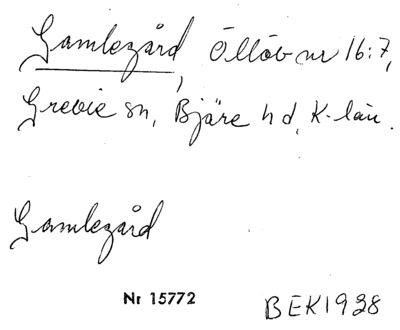 Gamlegård, Öllöv nr 16:7,
Grevie sn, Bjäre hd, K-län.
Gamlegård
Nr 15772
BEK1928